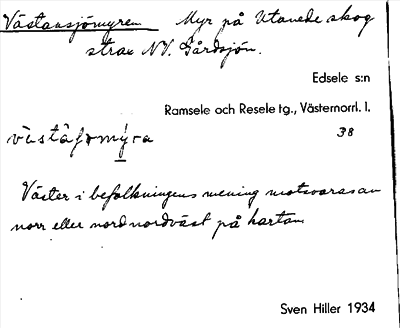 Västansjömyren Myr på Utanede skog
strax NV. Gårdsjön.
Edsele s:n
Ramsele och Resele tg., Västernorrl. l.
38
Väster i befolkningens mening motsvaras av
norr eller nordnordväst på kartan.
Sven Hiller 1934